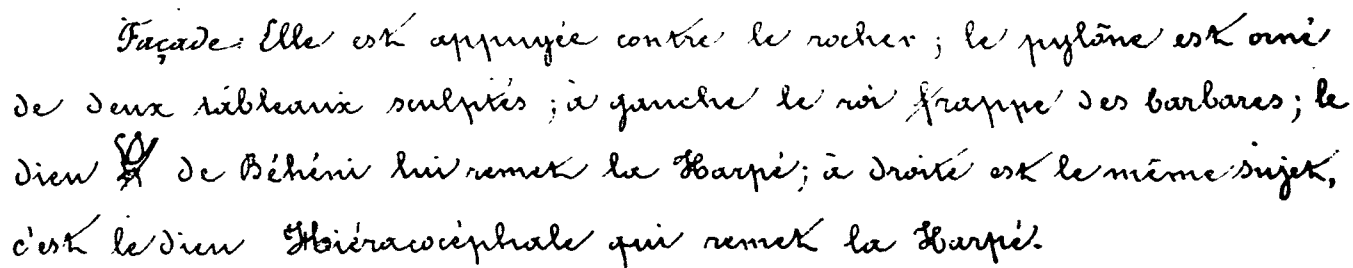 Façade: Elle est appuyée contre le rocher; le pylône est orné
de deux tableaux sculptés; à gauche le roi frappe des barbares; le
dieu de Béhéni lui remet la Harpé; à droite est le même sujet,
c'est le dieu Hiéracocéphale qui remet la Harpé.